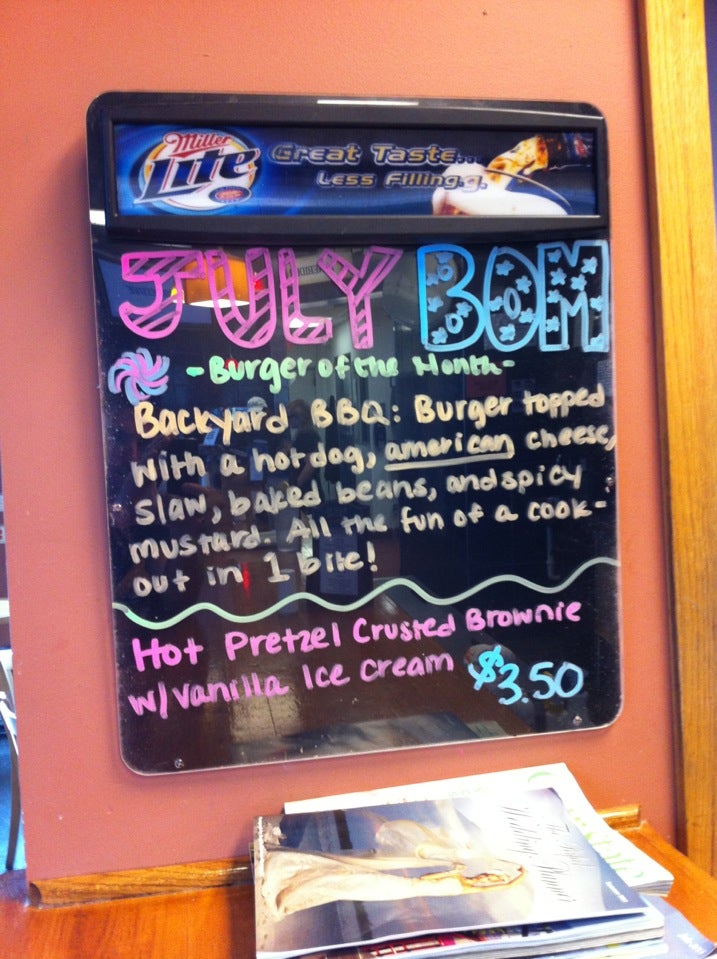 Miller
Lite
Great Taste...
Less Filling.
JULY BOM
-Burger of the Month-
Backyard BBQ: Burger topped
with a hotdog, american cheese,
slaw, baked beans, and spicy
mustard. All the fun of a cook-
out in 1 bite!
Hot Pretzel Crusted Brownie
w/ Vanilla Ice cream $3.50